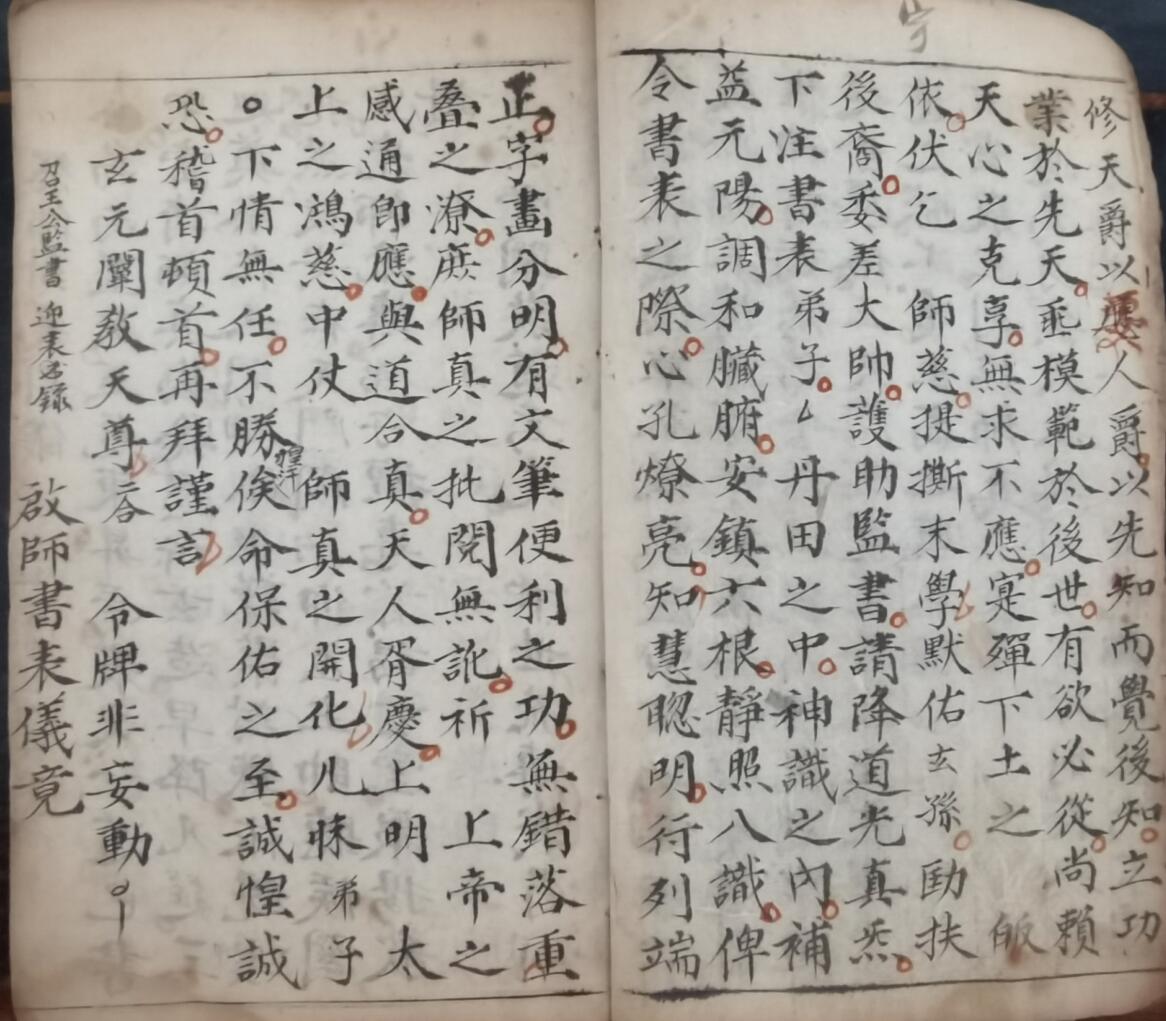 修天爵以要人爵以先知而覺後知立功
業於先天垂模範於後世有欲必從尚賴
天心之克享無求不應寔殫下土之皈
依伏乞 師慈提撕末學默佑玄孫勖扶
後裔委差大帥護助監書請降道光真炁
下注書表弟子厶丹田之中神識之內補
益元陽調和臟腑安鎮六根靜照八識俾
令書表之際心孔燎亮知慧聰明行列端
正字畫分明有文筆便利之功無錯落重
叠之潦庶師真之批閱無訛祈 上帝之
感通即應與道合真天人胥慶上明太
上之鴻慈中仗 師真之開化凡昧弟子
下情無任不勝俟命保佑之至誠惶誠
恐稽首頓首再拜謹言
玄元闡教天尊 合 令牌非妄動
召王公監書 迎表 錄
啟師書表儀竟